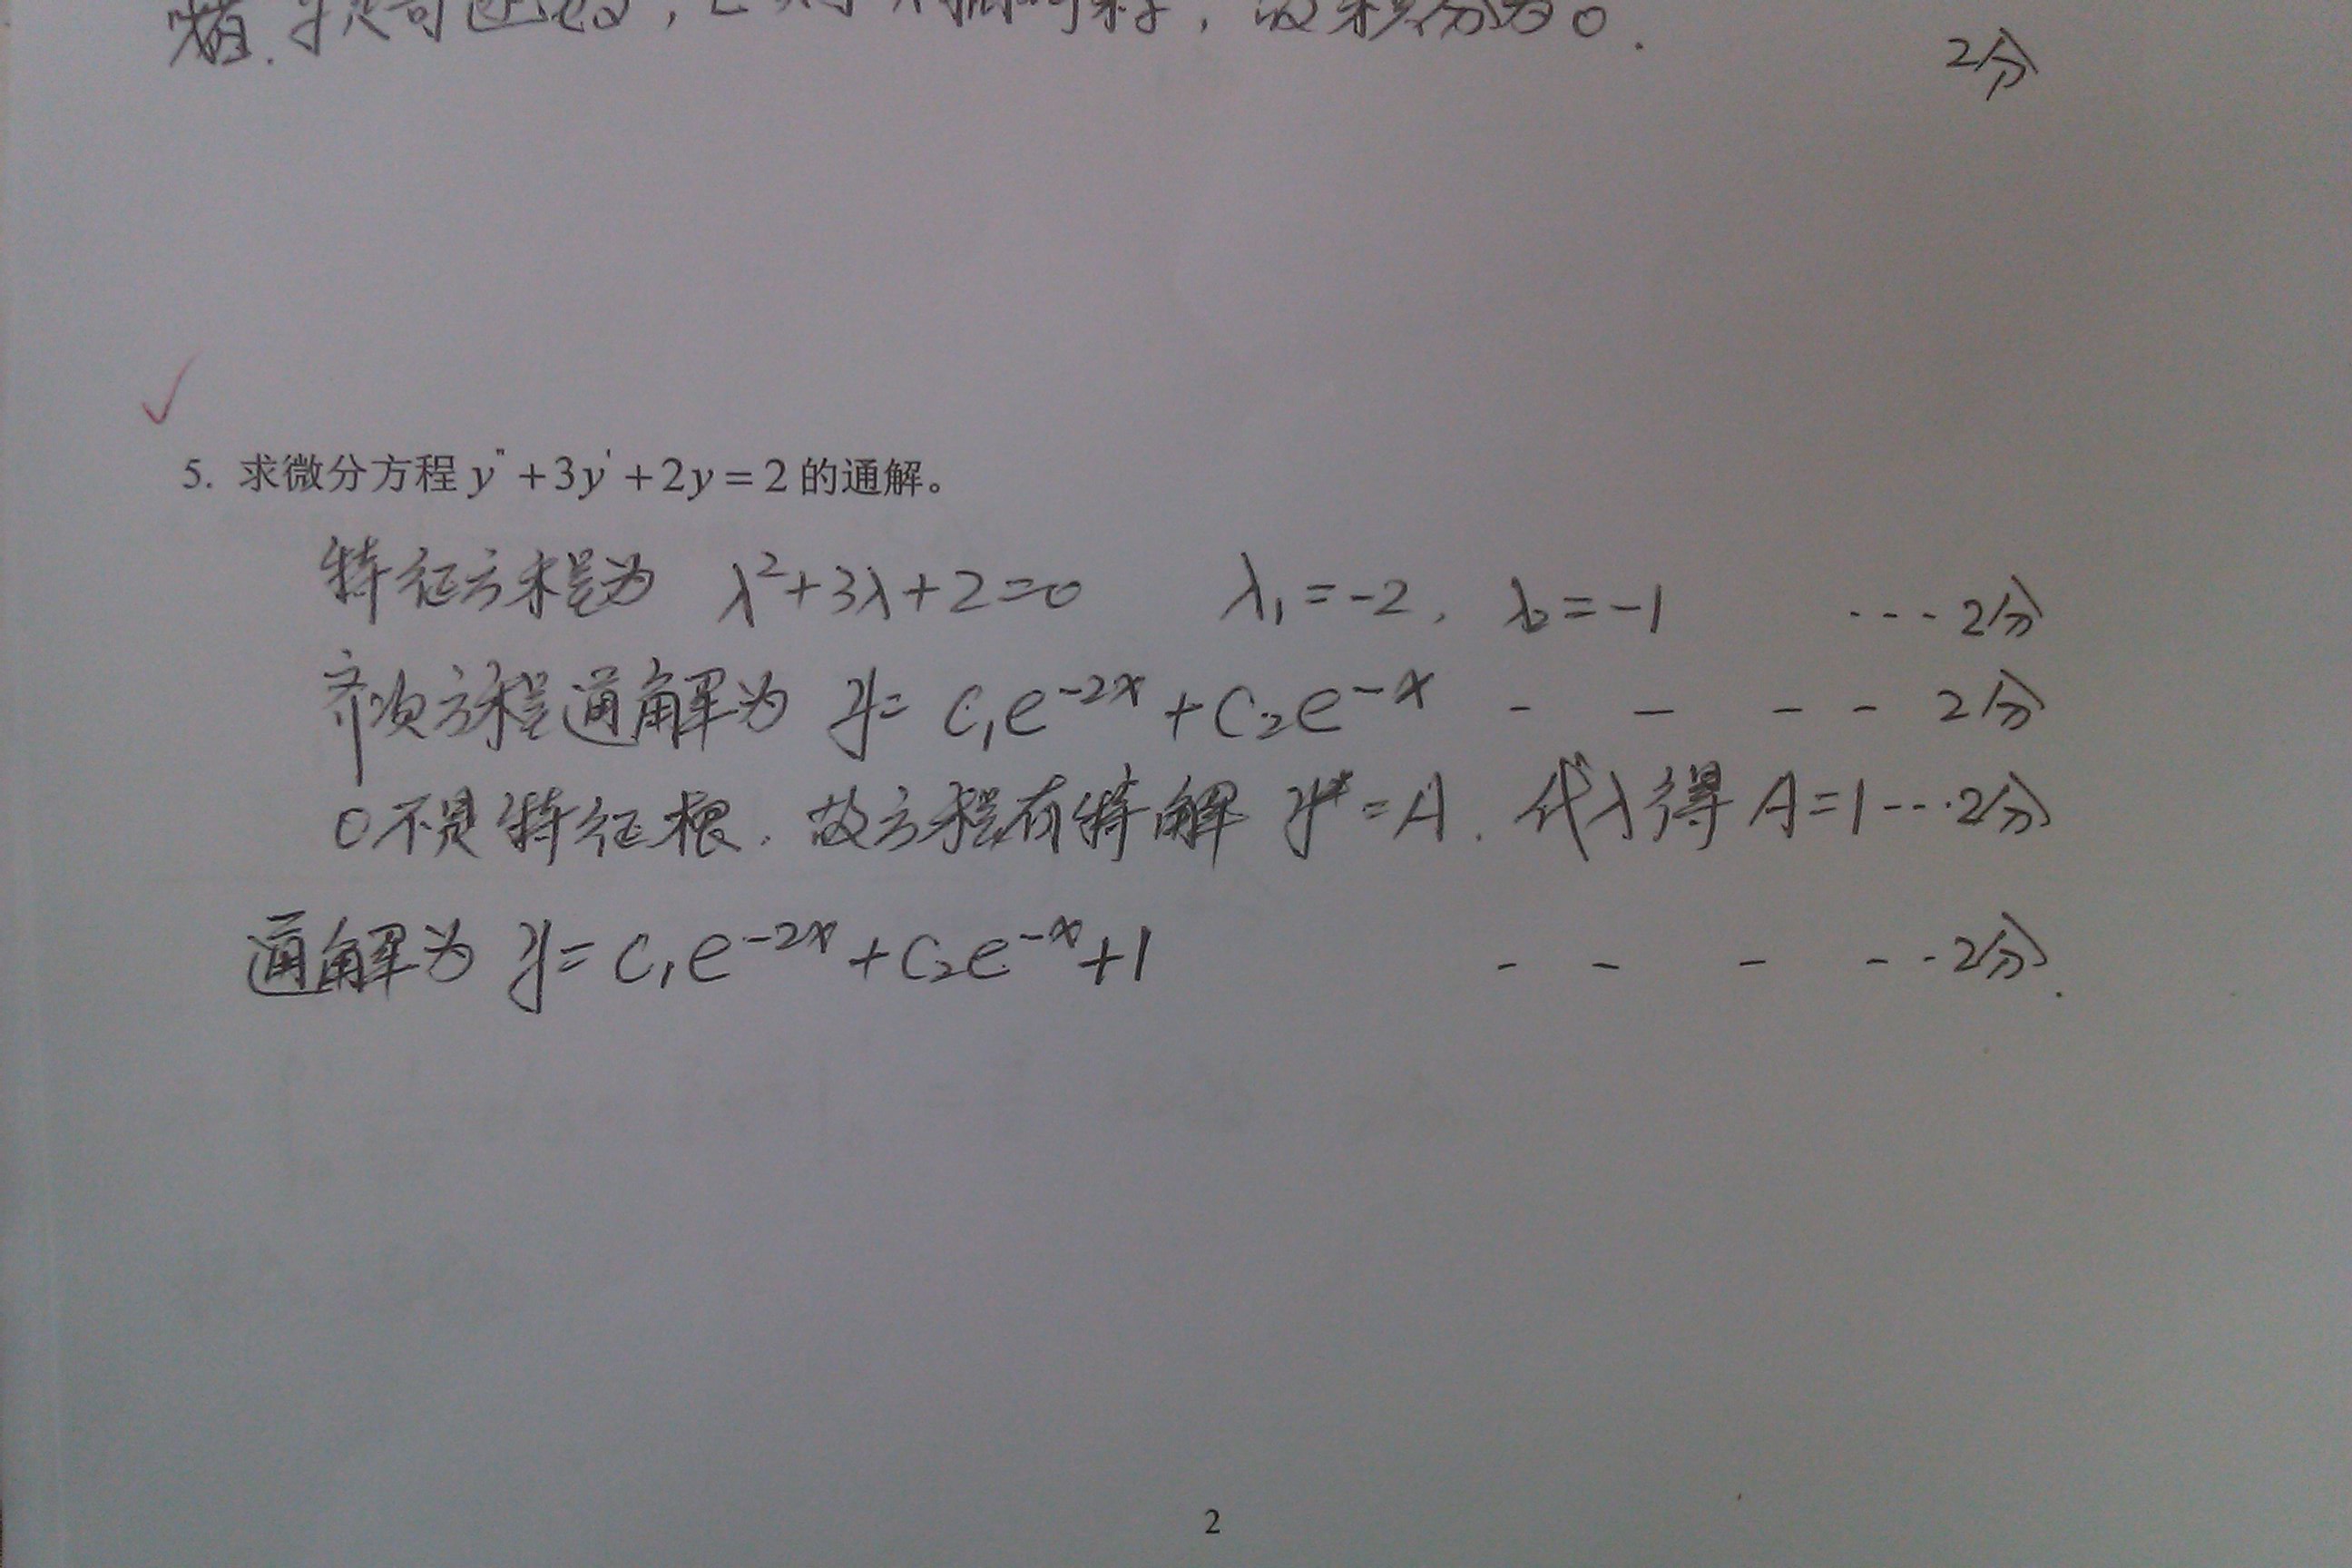 故积分为0.
2分
5. 求微分方程 y" + 3y' + 2y = 2 的通解。
特征方程为 λ²+3λ+2=0 λ₁=-2, λ₂=-1 ...2分
齐次方程通解为 y= C₁e^{-2x} + C₂e^{-x} - - - - 2分
0不是特征根. 故方程有特解 y*=A. 代入得 A=1...2分
通解为 y= C₁e^{-2x} + C₂e^{-x}+1 - - - - - 2分.
2